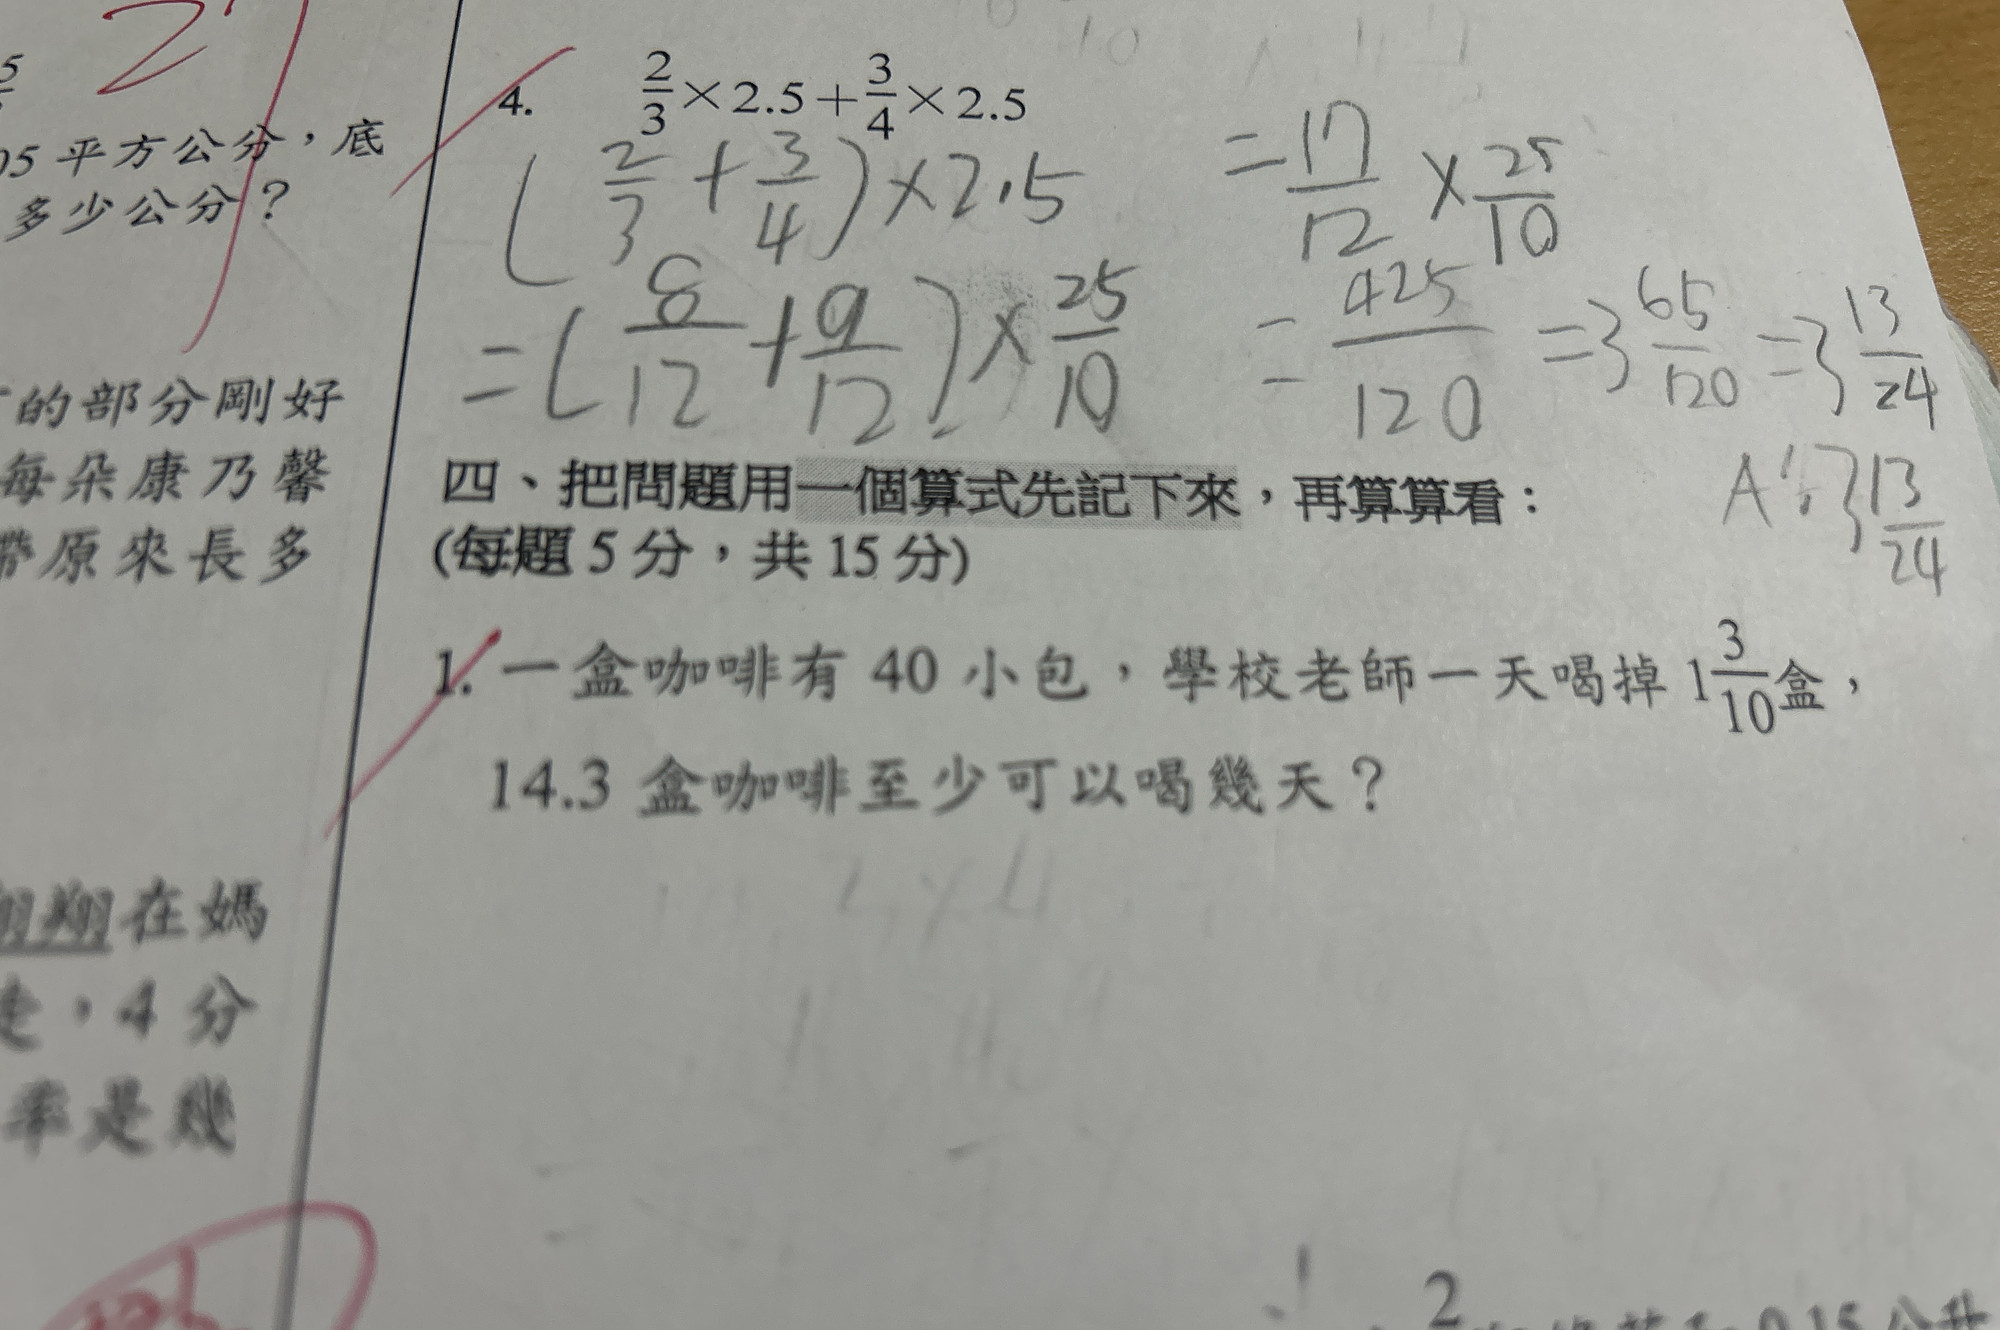 05 平方公分，底
多少公分？
的部分剛好
每朵康乃馨
帶原來長多
翔翔在媽
走，4 分
率是幾
4. 2/3×2.5+3/4×2.5
(2/3+3/4)×2.5
=(8/12+9/12)×25/10
=17/12×25/10
=425/120=3 65/120=3 13/24
A:3 13/24
四、把問題用一個算式先記下來，再算算看：
(每題 5 分，共 15 分)
1. 一盒咖啡有 40 小包，學校老師一天喝掉 1 3/10盒，
14.3 盒咖啡至少可以喝幾天？